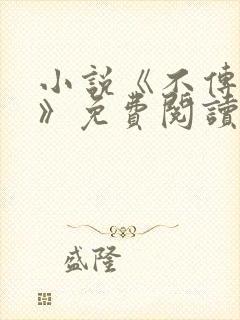 小說《不傳
》免費閱讀
盛隆